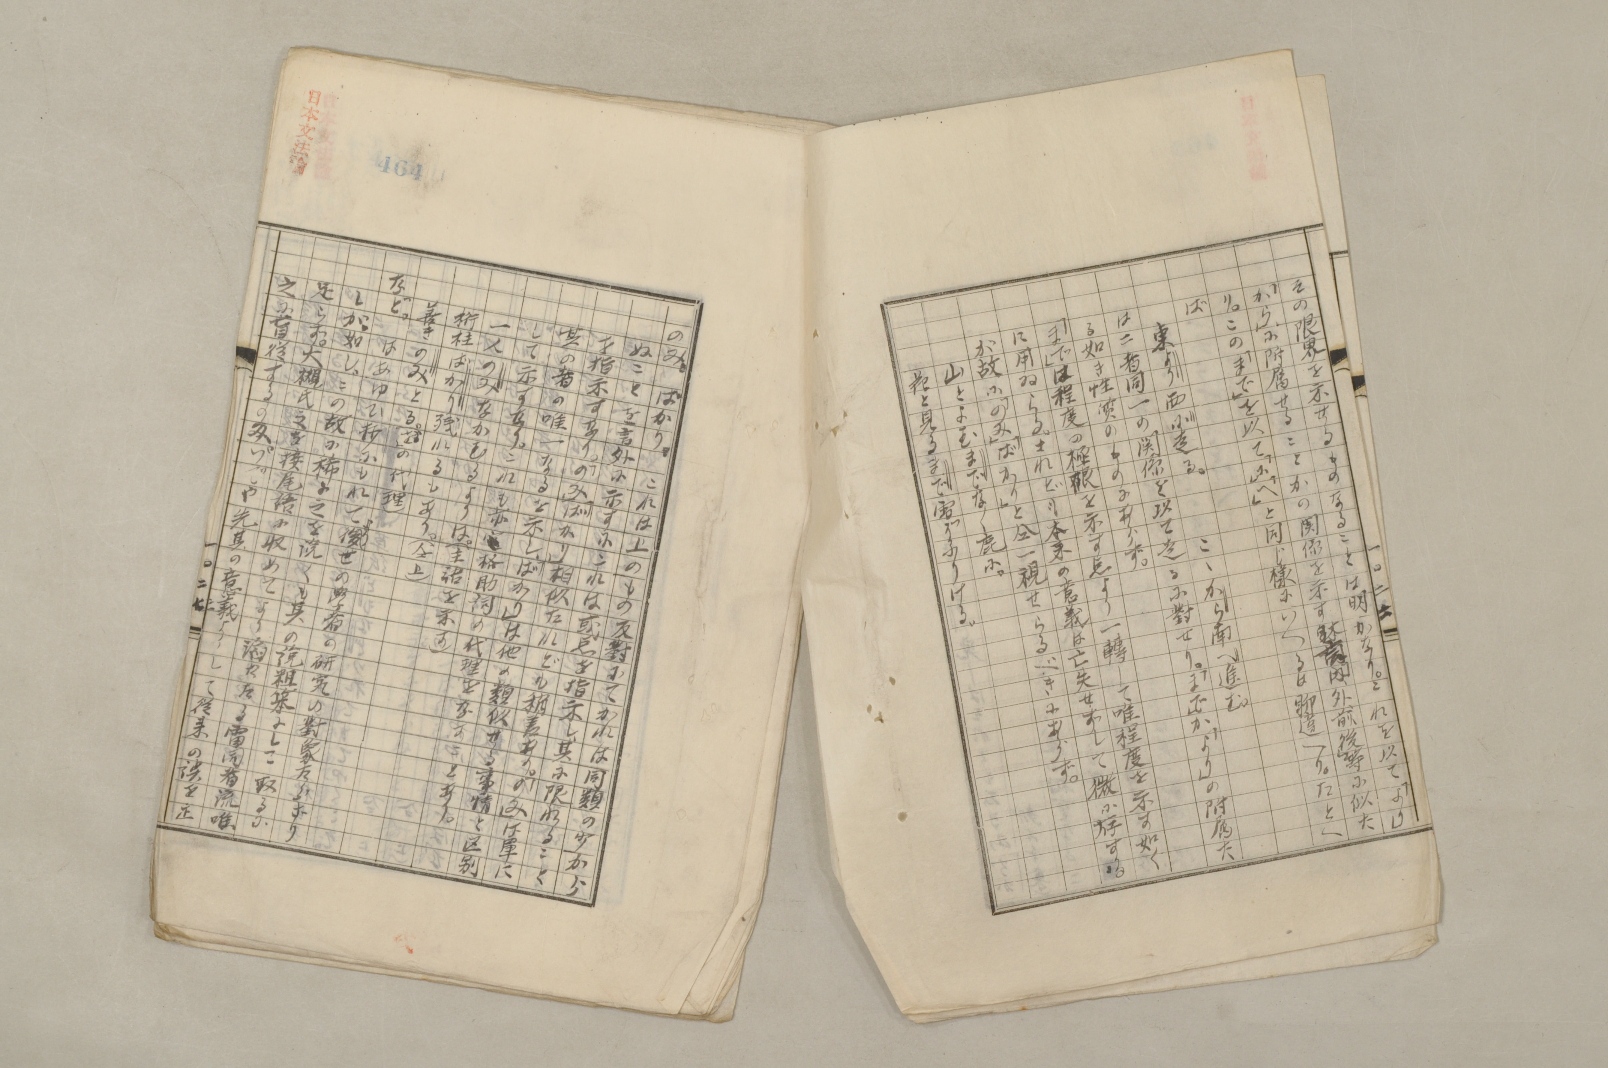 その限界を示せるものなることは明かなり。これを以て「より」
「から」に附属せることかの関係を示す 内外前後等に似た
り。この「まで」を以て「に」「へ」と同じ様にいへるは聊違へり。たとへ
ば
東より西に走る。 ここから南へ進む。
は二者同一の関係を以て走るに対せり。「まで」が「より」の附属た
る如き性質のものにあらず。
「まで」は程度の極限を示す点より一轉して唯程度を示す如く
に用ゐらる。されども本来の意義は亡失せずして微に存する
が故に「のみ」「ばかり」と仝一視せらるべきにあらず。
山とよむまでなく鹿に。
花と見るまで雪ぞふりける。
一〇二六
日本文法論
464
のみ。ばかり。 これは上のもの反對にてかれは同類の少から
ぬことを言外に示すにこれは或点を指示し其に限れること
を指示すあり。「のみ」「ばかり」相似たれども相差あり。「のみ」は單に
其の者の唯一なるを示し「ばかり」は他の類似せる事情と区別
して示すなり。これも亦格助詞の代理をなすことあり。
一人のみなかむるよりは。(主語を示す)
桁柱ばかり残れるもあり。(仝上)
善きのみとる。(をの代理)
など。 はあゆひ抄にもれて後世の学者の研究の對象たらざり
しが如し。この故か稀に之を説くも其の説粗笨にして取るに
足らず。大槻氏之を接尾語に収めてより滔々たる雷同者流唯
之に盲従するのみ。いでや先其の意義よりして従来の誤を正
一〇二七